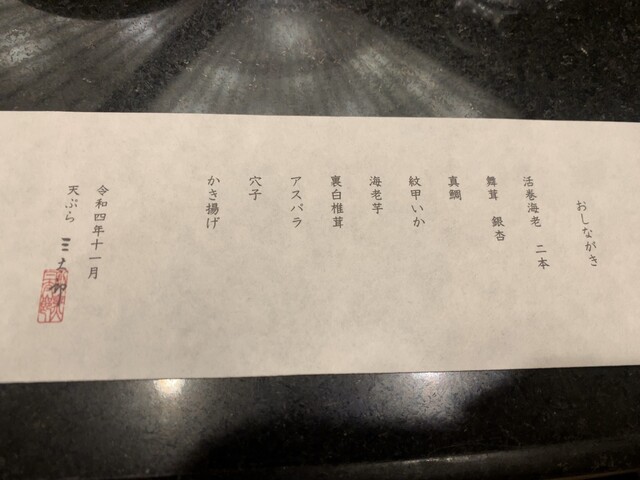 おしながき
活巻海老 二本
舞茸 銀杏
真鯛
紋甲いか
海老芋
裏白椎茸
アスパラ
穴子
かき揚げ
令和四年十一月
天ぷら